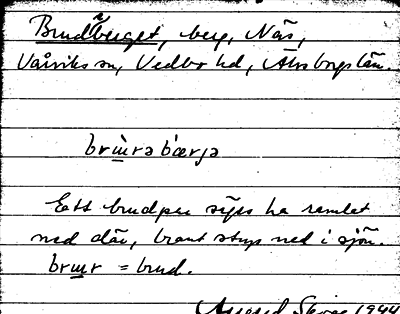 Brudberget, berg, Näs,
Vårviks sn, Vedbo hd, Älvsborgs län.
brɯ̀rəbærjə
Ett brudpar säges ha ramlat
ned där, brant stup ned i sjön.
brɯr = brud.
1944